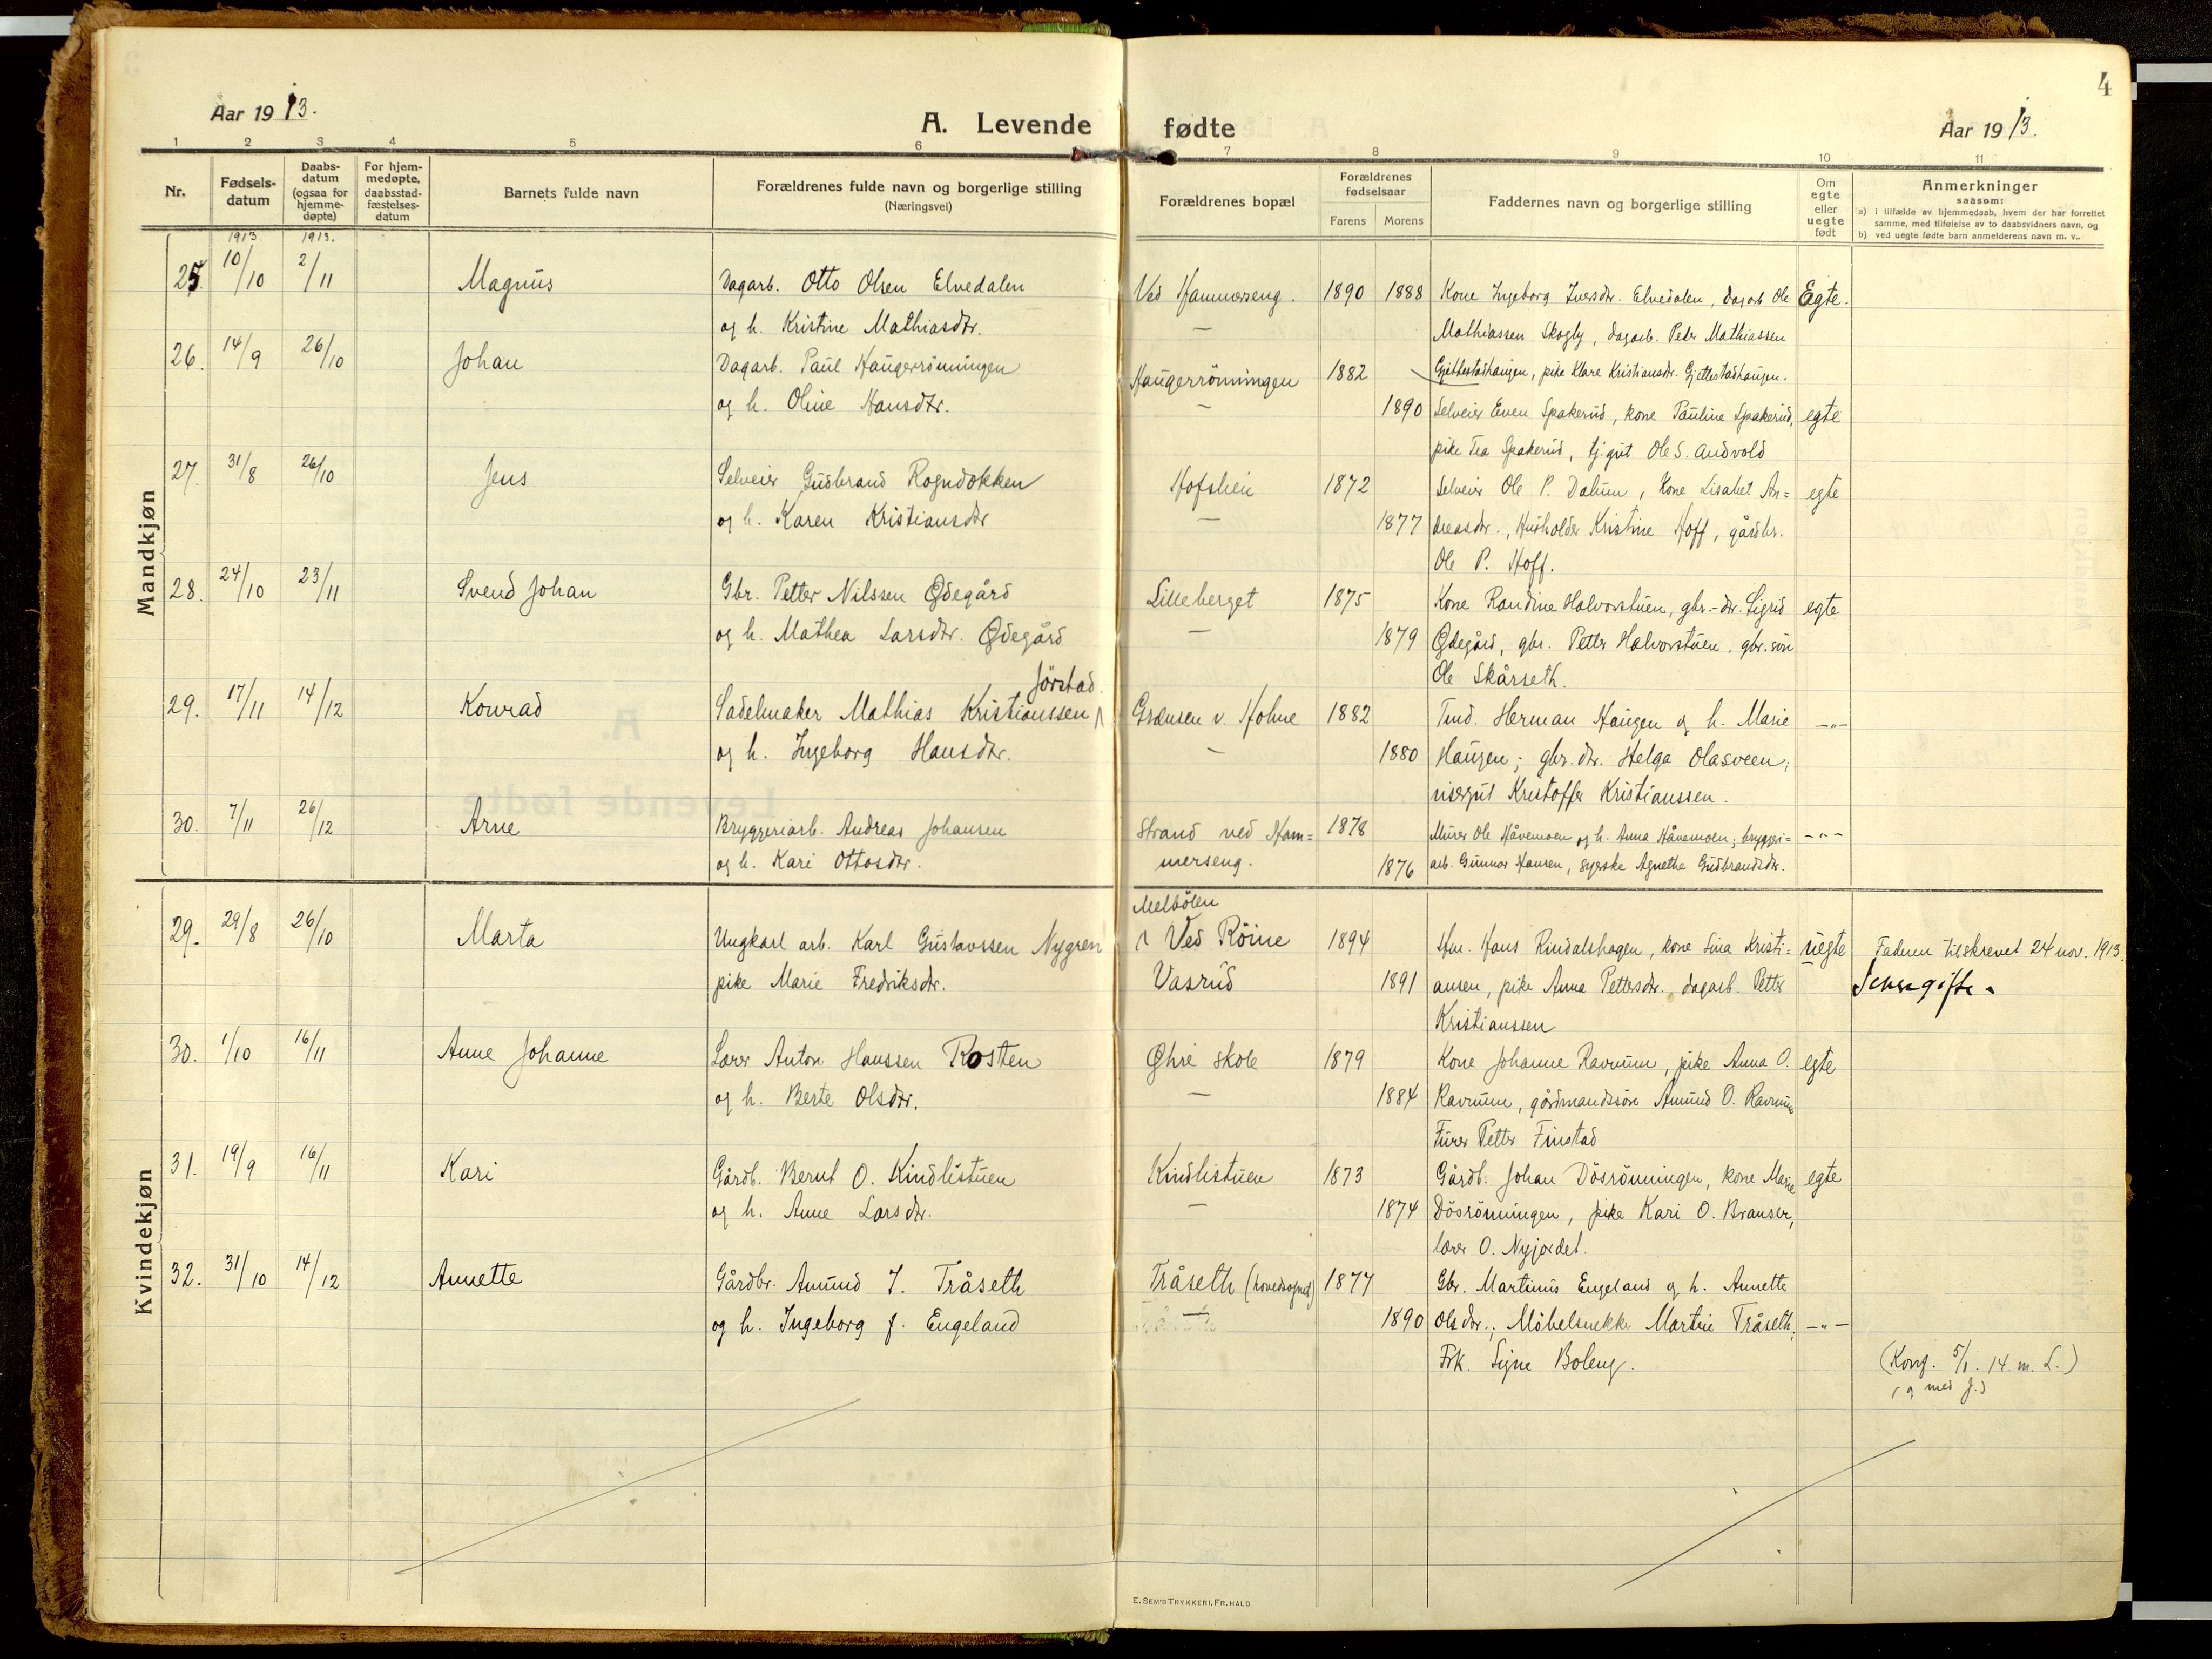 4
Aar 1913.
A. Levende fødte
Aar 1913.
1 2 3 4 5 6 7 8 9 10 11
Nr.
Fødsels-
datum
Daabs-
datum
(ogsaa for
hjemme-
døpte)
For hjem-
medøpte,
daabsstad-
fæstelses-
datum
Barnets fulde navn
Forældrenes fulde navn og borgerlige stilling
(Næringsvei)
Forældrenes bopæl
Forældrenes
fødselsaar
Farens Morens
Faddernes navn og borgerlige stilling
Om
egte
eller
uegte
født
Anmerkninger
saasom:
a) i tilfælde av hjemmedaab, hvem der har forrettet
samme, med tilføielse av to daabsvidners navn, og
b) ved uegte fødte barn anmelderens navn m. v..
Mandkjøn
1913 1913.
25 10/10 2/11 Magnus Dagarb. Otto Olsen Elvedalen Ved Hammerseng. 1890 1888 Kone Ingeborg Iversdtr. Elvedalen, dagarb Ole Egte.
og h. Kristine Mathiasdtr. — Mathiassen Skogly, dagarb. Peder Mathiassen
26. 14/9 26/10 Johan Dagarb. Paul Haugerrönningen Haugerrönningen 1882 Gjettestadhaugen, pike Klare Kristiansdr. Gjettestadhaugen.
og h. Oline Hansdtr. — 1890 Selveier Even Spakerud, kone Pauline Spakerud, egte
pike Tea Spakerud, tj.gut Ole S. Andvold
27. 31/8 26/10 Jens Selveier Gudbrand Rogndokken Hofslien 1872 Selveier Ole P. Dalum, Kone Lisabet An= egte
og h. Karen Kristiansdtr — 1877 dreasdtr., Husholder Kristine Hoff, gårdbr.
Ole P. Hoff.
28. 24/10 23/11 Svend Johan Gbr. Petter Nilssen Ødegård Lilleberget 1875 Kone Randine Halvorstuen, gbr.-dtr. Sigrid egte
og h. Mathea Larsdtr. Ødegård — 1879 Ødegård, gbr. Petter Halvorstuen, gbr. sön
Ole Skårseth.
Jörstad.
29. 17/11 14/12 Konrad Sadelmaker Mathias Kristianssen Grænsen v. Holme 1882 Tmd. Herman Haugen og h. Marie —"—
og h. Ingeborg Hansdtr. — 1880 Haugen; gbr. dtr. Helga Olasveen,
visergut Kristoffer Kristianssen.
30. 7/11 26/12 Arne Bryggeriarb. Andreas Johansen Strand ved Ham= 1878 Murer Ole Håvemoen og h. Anna Håvemoen; bryggeri= —"—
og h. Kari Ottosdtr. merseng. 1876 arb. Gunnar Hansen, syerske Agnethe Gudbrandsdtr.
Kvindekjøn
Melbölen
29. 29/8 26/10 Marta Ungkarl arb. Karl Gustavssen Nygren Ved Röine 1894 Hm. Hans Rindalshagen, kone Lina Kristi= uegte Faderen tilskrevet 24 nov. 1913.
pike Marie Fredriksdtr. Vasrud 1891 ansen, pike Anna Pettersdtr., dagarb. Petter Senere gifte.
Kristianssen
30. 1/10 16/11 Anne Johanne Lærer Anton Hanssen Rosten Øhre skole 1879 Kone Johanne Ravnum, pike Anna O. egte
og h. Berte Olsdtr. — 1884 Ravnum, gårdmandssön Amund O. Ravnum
Furer Petter Finstad
31. 19/9 16/11 Kari Gårdb. Bernt O. Kindlistuen Kindlistuen 1873 Gårdb. Johan Dösrönningen, kone Marie egte
og h. Anne Larsdtr. — 1874 Dösrönningen, pike Kari O. Branser,
lærer O. Nyjordet.
32. 31/10 14/12 Annette Gårdbr. Amund J. Tråseth Tråseth (hovedsognet) 1877 Gbr. Martinus Engeland og h. Annette
og h. Ingeborg f. Engeland — 1890 Olsdtr.; Möbelsnekker Martin Tråseth; —"—
Frk. Signe Boleng. (Konf. 5/1. 14. m. L.)
(og med J.)
E. SEM'S TRYKKERI, FR.HALD